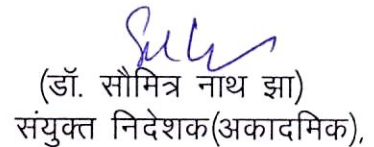 (डॉ. सौमित्र नाथ झा)
संयुक्त निदेशक(अकादमिक),